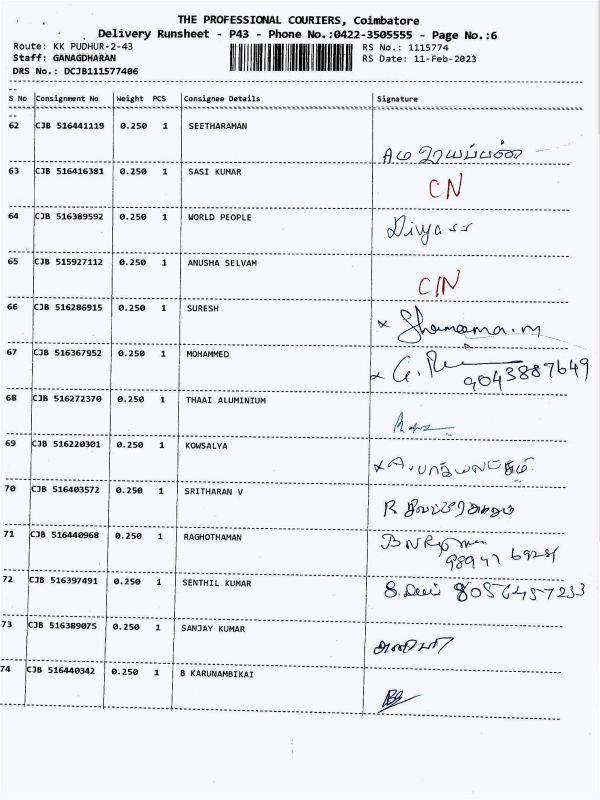 THE PROFESSIONAL COURIERS, Coimbatore
Delivery Runsheet - P43 - Phone No.:0422-3505555 - Page No.:6
Route: KK PUDHUR-2-43 RS No.: 1115774
Staff: GANAGDHARAN RS Date: 11-Feb-2023
DRS No.: DCJB111577406
S No Consignment No Weight PCS Consignee Details Signature
62 CJB 516441119 0.250 1 SEETHARAMAN
63 CJB 516416381 0.250 1 SASI KUMAR CN
64 CJB 516389592 0.250 1 WORLD PEOPLE Divya
65 CJB 515927112 0.250 1 ANUSHA SELVAM CIN
66 CJB 516286915 0.250 1 SURESH x
67 CJB 516367952 0.250 1 MOHAMMED x G. 9043887649
68 CJB 516272370 0.250 1 THAAI ALUMINIUM
69 CJB 516220301 0.250 1 KOWSALYA x A.
70 CJB 516403572 0.250 1 SRITHARAN V R
71 CJB 516440968 0.250 1 RAGHOTHAMAN
72 CJB 516397491 0.250 1 SENTHIL KUMAR 8056457233
73 CJB 516389075 0.250 1 SANJAY KUMAR
74 CJB 516440342 0.250 1 B KARUNAMBIKAI